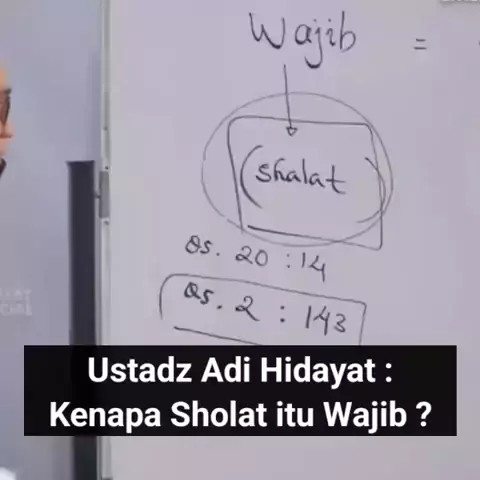 Wajib =
(shalat)
Qs. 20 : 14
Qs. 2 : 143
Ustadz Adi Hidayat :
Kenapa Sholat itu Wajib ?